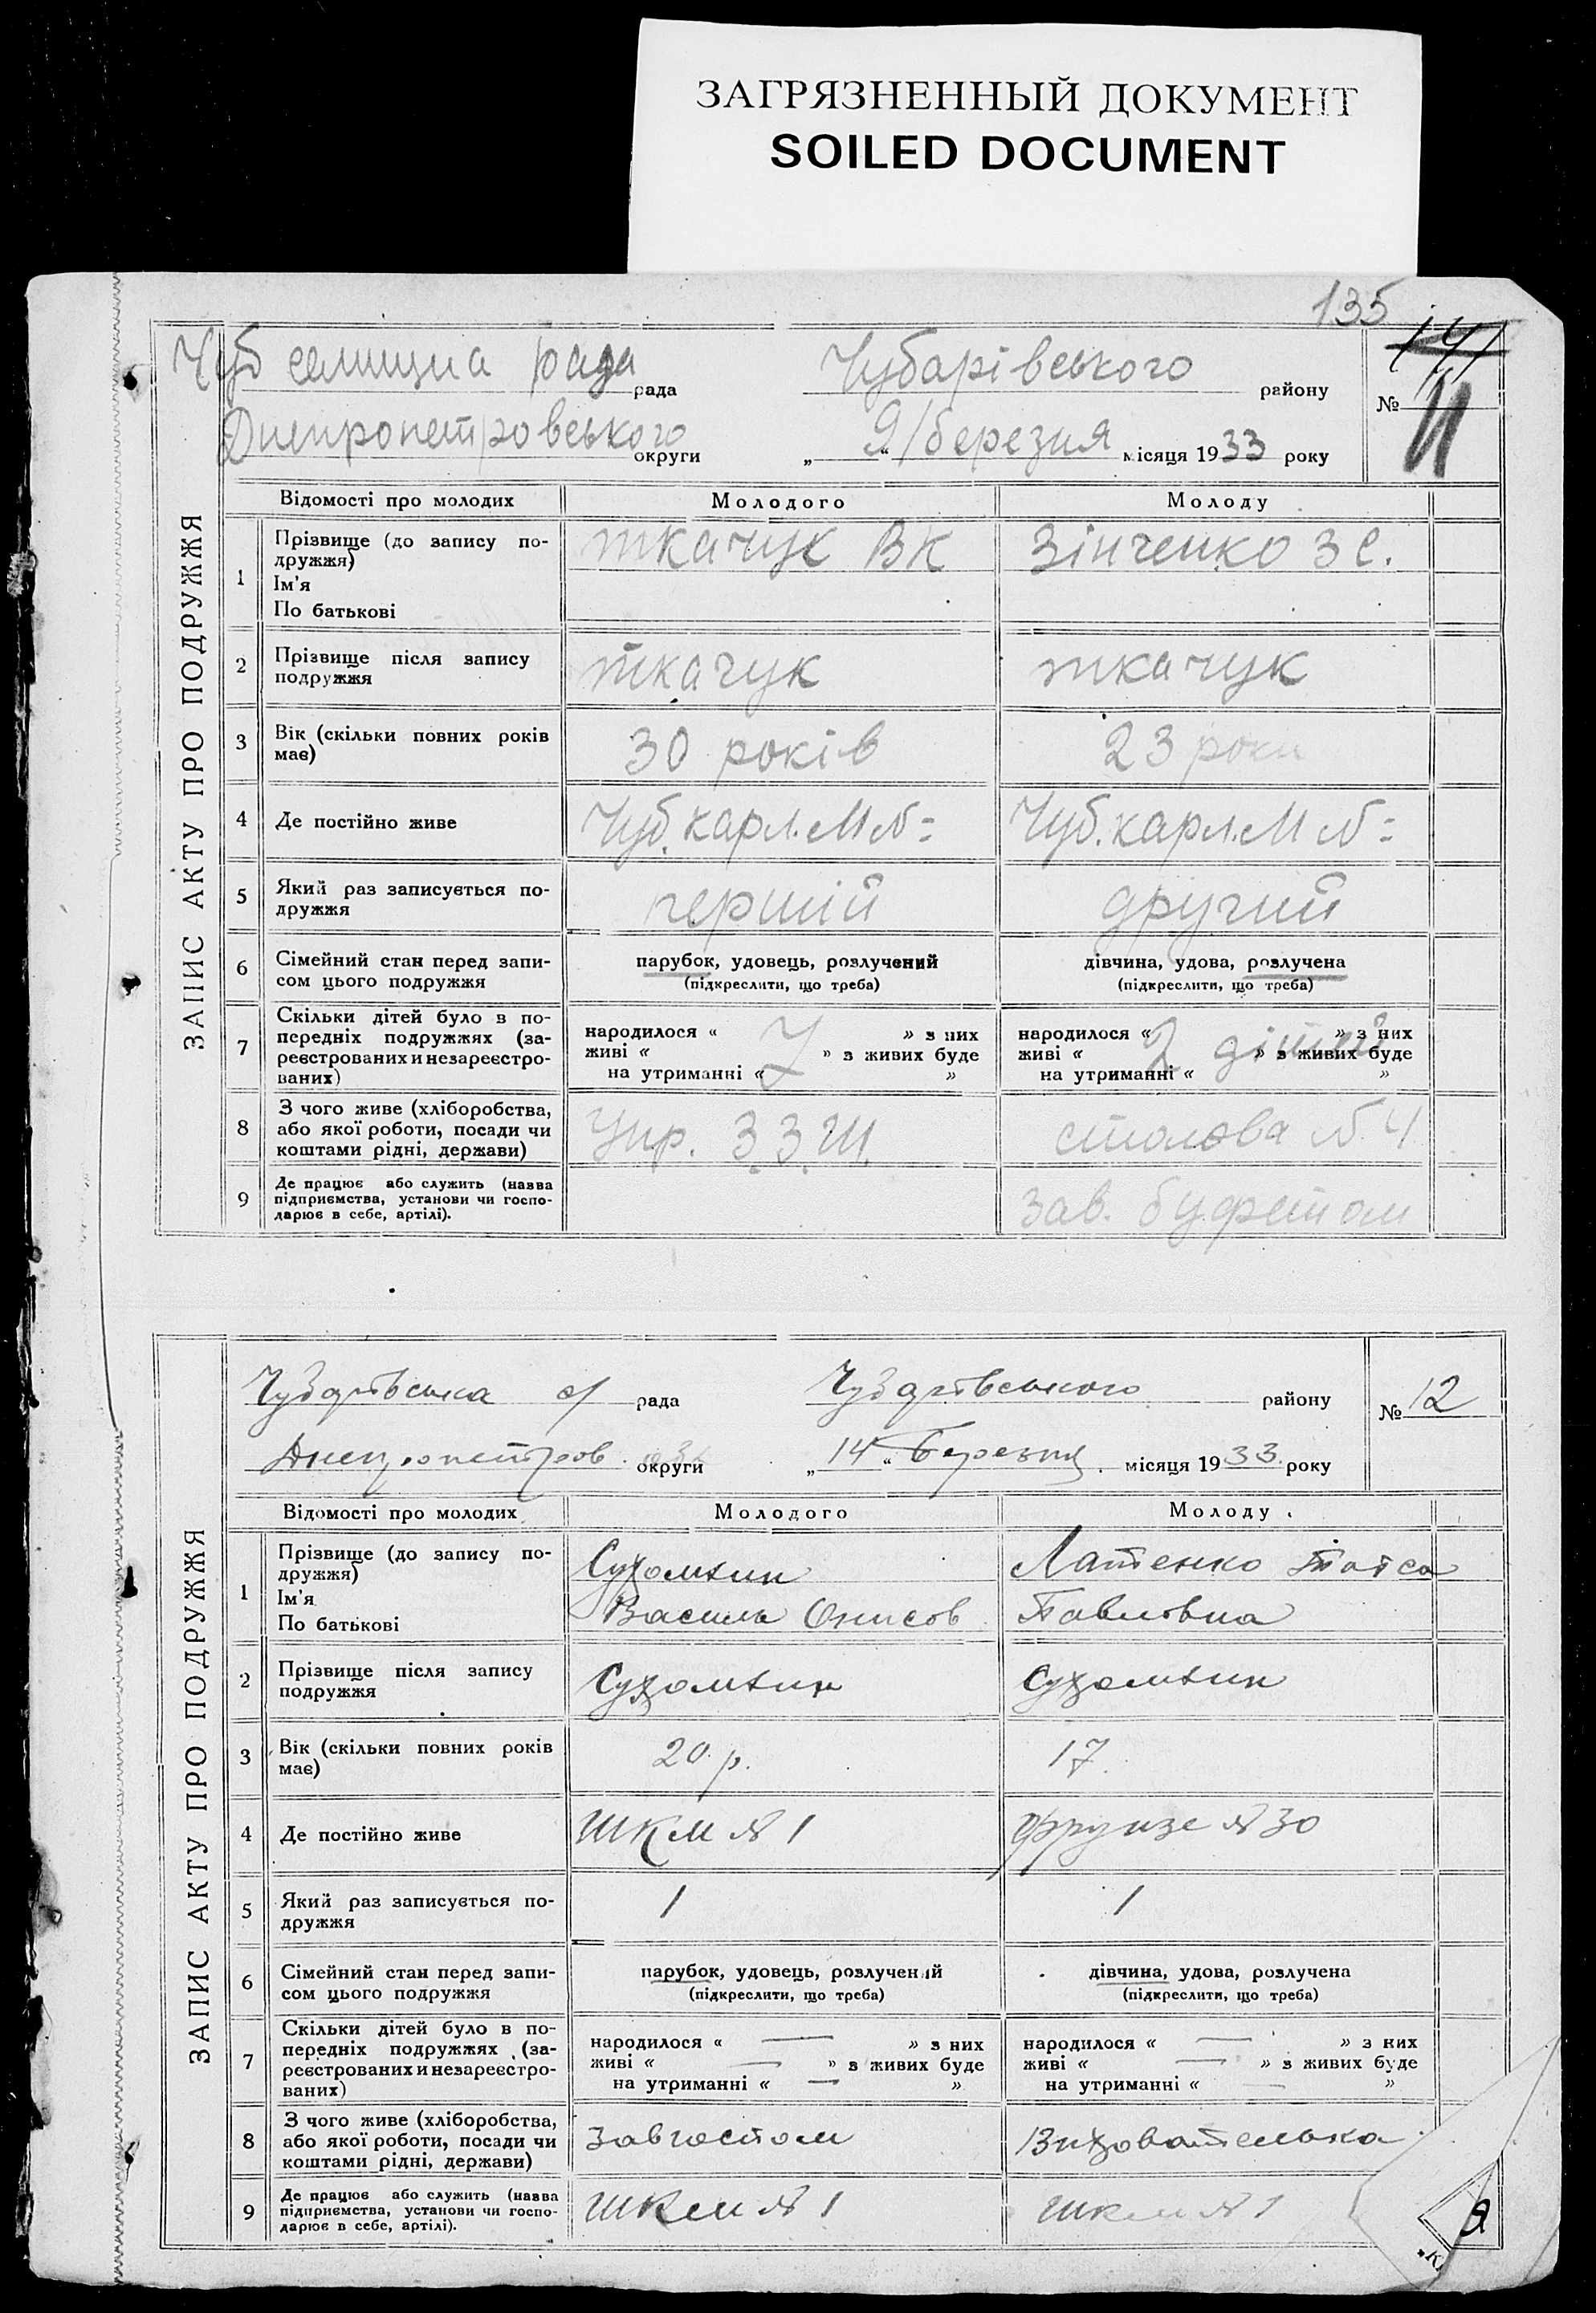 ЗАГРЯЗНЕННЫЙ ДОКУМЕНТ
SOILED DOCUMENT
135
141
ЗАПИС АКТУ ПРО ПОДРУЖЖЯ
Чуб селищна рада рада Чубарівського району
№ 11
Днепропетровського округи „ 9 “ березня місяця 1933 року
Відомості про молодих Молодого Молоду
1 Прізвище (до запису по-
дружжя)
Ім'я
По батькові
ткачук ВК Зінченко З С.
2 Прізвище після запису
подружжя
ткачук ткачук
3 Вік (скільки повних років
має)
30 років 23 роки
4 Де постійно живе Чуб. карл. М №= Чуб. карл. М №=
5 Який раз записується по-
дружжя
перший другий
6 Сімейний стан перед запи-
сом цього подружжя
парубок, удовець, розлучений
(підкреслити, що треба)
дівчина, удова, розлучена
(підкреслити, що треба)
7 Скільки дітей було в по-
передніх подружжях (за-
реєстрованих и незареєстро-
ваних)
народилося « » з них
живі « » з живих буде
на утриманні « »
народилося « » з них
живі « 2 дітей » з живих буде
на утриманні « »
8 З чого живе (хліборобства,
або якої роботи, посади чи
коштами рідні, держави)
Упр. З.З.Ш. столова № 4
9 Де працює або служить (назва
підприємства, установи чи госпо-
дарює в себе, артілі).
зав. буфетом
ЗАПИС АКТУ ПРО ПОДРУЖЖЯ
Чубарівська с/ рада Чубарівського району
№ 12
Днепропетров. округи „ 14 “ Березня місяця 1933. року
Відомості про молодих Молодого Молоду
1 Прізвище (до запису по-
дружжя)
Ім'я
По батькові
Сухомлин
Василь Онисов
Латенко Таїса
Павловна
2 Прізвище після запису
подружжя
Сухомлин Сухомлин
3 Вік (скільки повних років
має)
20 р. 17.
4 Де постійно живе ШКМ № 1 Фрунзе № 30
5 Який раз записується по-
дружжя
1 1
6 Сімейний стан перед запи-
сом цього подружжя
парубок, удовець, розлучений
(підкреслити, що треба)
дівчина, удова, розлучена
(підкреслити, що треба)
7 Скільки дітей було в по-
передніх подружжях (за-
реєстрованих и незареєстро-
ваних)
народилося « — » з них
живі « — » з живих буде
на утриманні « — »
народилося « — » з них
живі « — » з живих буде
на утриманні « — »
8 З чого живе (хліборобства,
або якої роботи, посади чи
коштами рідні, держави)
Завгостом Вихователька
9 Де працює або служить (назва
підприємства, установи чи госпо-
дарює в себе, артілі).
ШКМ № 1 ШКМ № 1